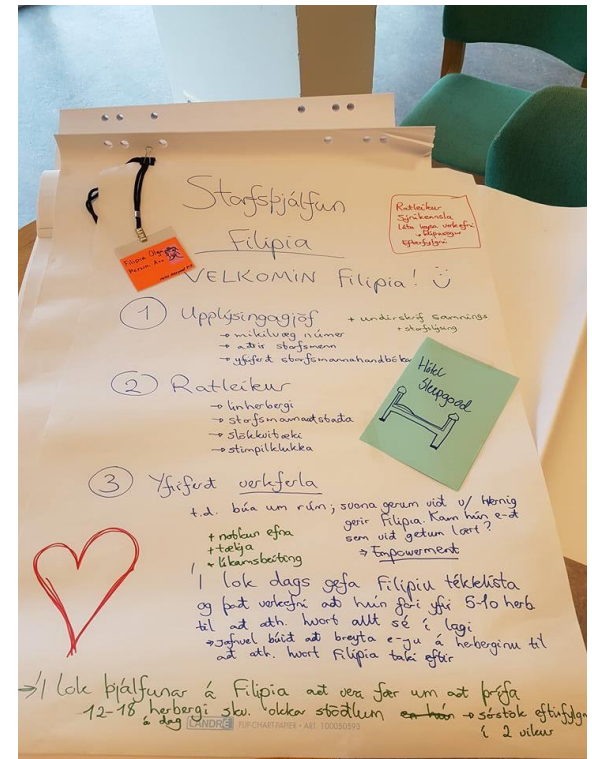 Starfsþjálfun
Filipia
VELKOMIN Filipia!
Ratleikur
Sýnikennsla
Láta leysa verkefni
Eftirfylgni
Filipia
① Upplýsingagjöf + undirskrif samnings
+ starfslýsing
→ mikilvæg númer
→ aðrir starfsmenn
→ yfirferð starfsmannahandbókar
Hótel
Sleepgood
② Ratleikur
→ línherbergi
→ starfsmannaaðstaða
→ slökkvitæki
→ stimpilklukka
③ Yfirferð verkferla
t.d. búa um rúm; svona gerum við v/ Hvernig
gerir Filipia. Kann hún e-ð
sem við getum lært?
⇒ Empowerment
+ notkun efna
+ tækja
+ líkamsbeiting
Í lok dags gefa Filipiu tékklista
og það verkefni að hún fari yfir 5-10 herb
til að ath. hvort allt sé í lagi
→ jafnvel búið að breyta e-ju á herberginu til
að ath. hvort Filipia taki eftir
→ Í lok þjálfunar á Filipia að vera fær um að þrífa
12-18 herbergi skv. okkar stöðlum → sérstök eftirfylgni
á dag í 2 vikur
LANDRÉ FLIP-CHARTPAPIER • ART. 100050593